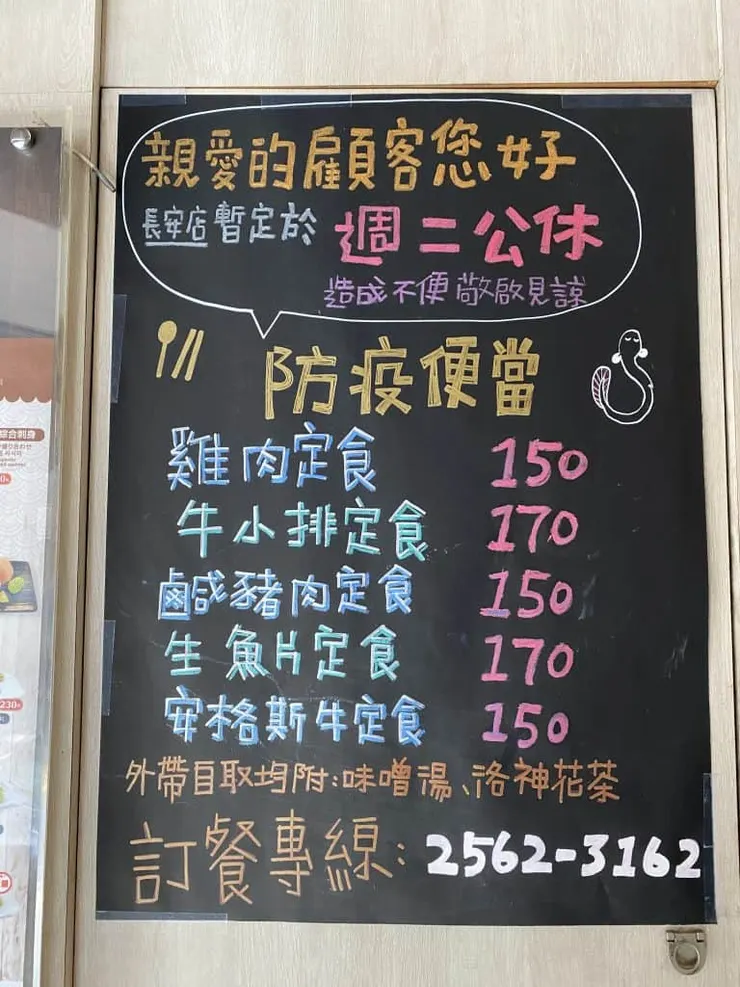 親愛的顧客您好
長安店暫定於 週二公休
造成不便 敬啟見諒
防疫便當
雞肉定食 150
牛小排定食 170
鹹豬肉定食 150
生魚片定食 170
安格斯牛定食 150
外帶自取均附:味噌湯、洛神花茶
訂餐專線:2562-3162
綜合刺身
230